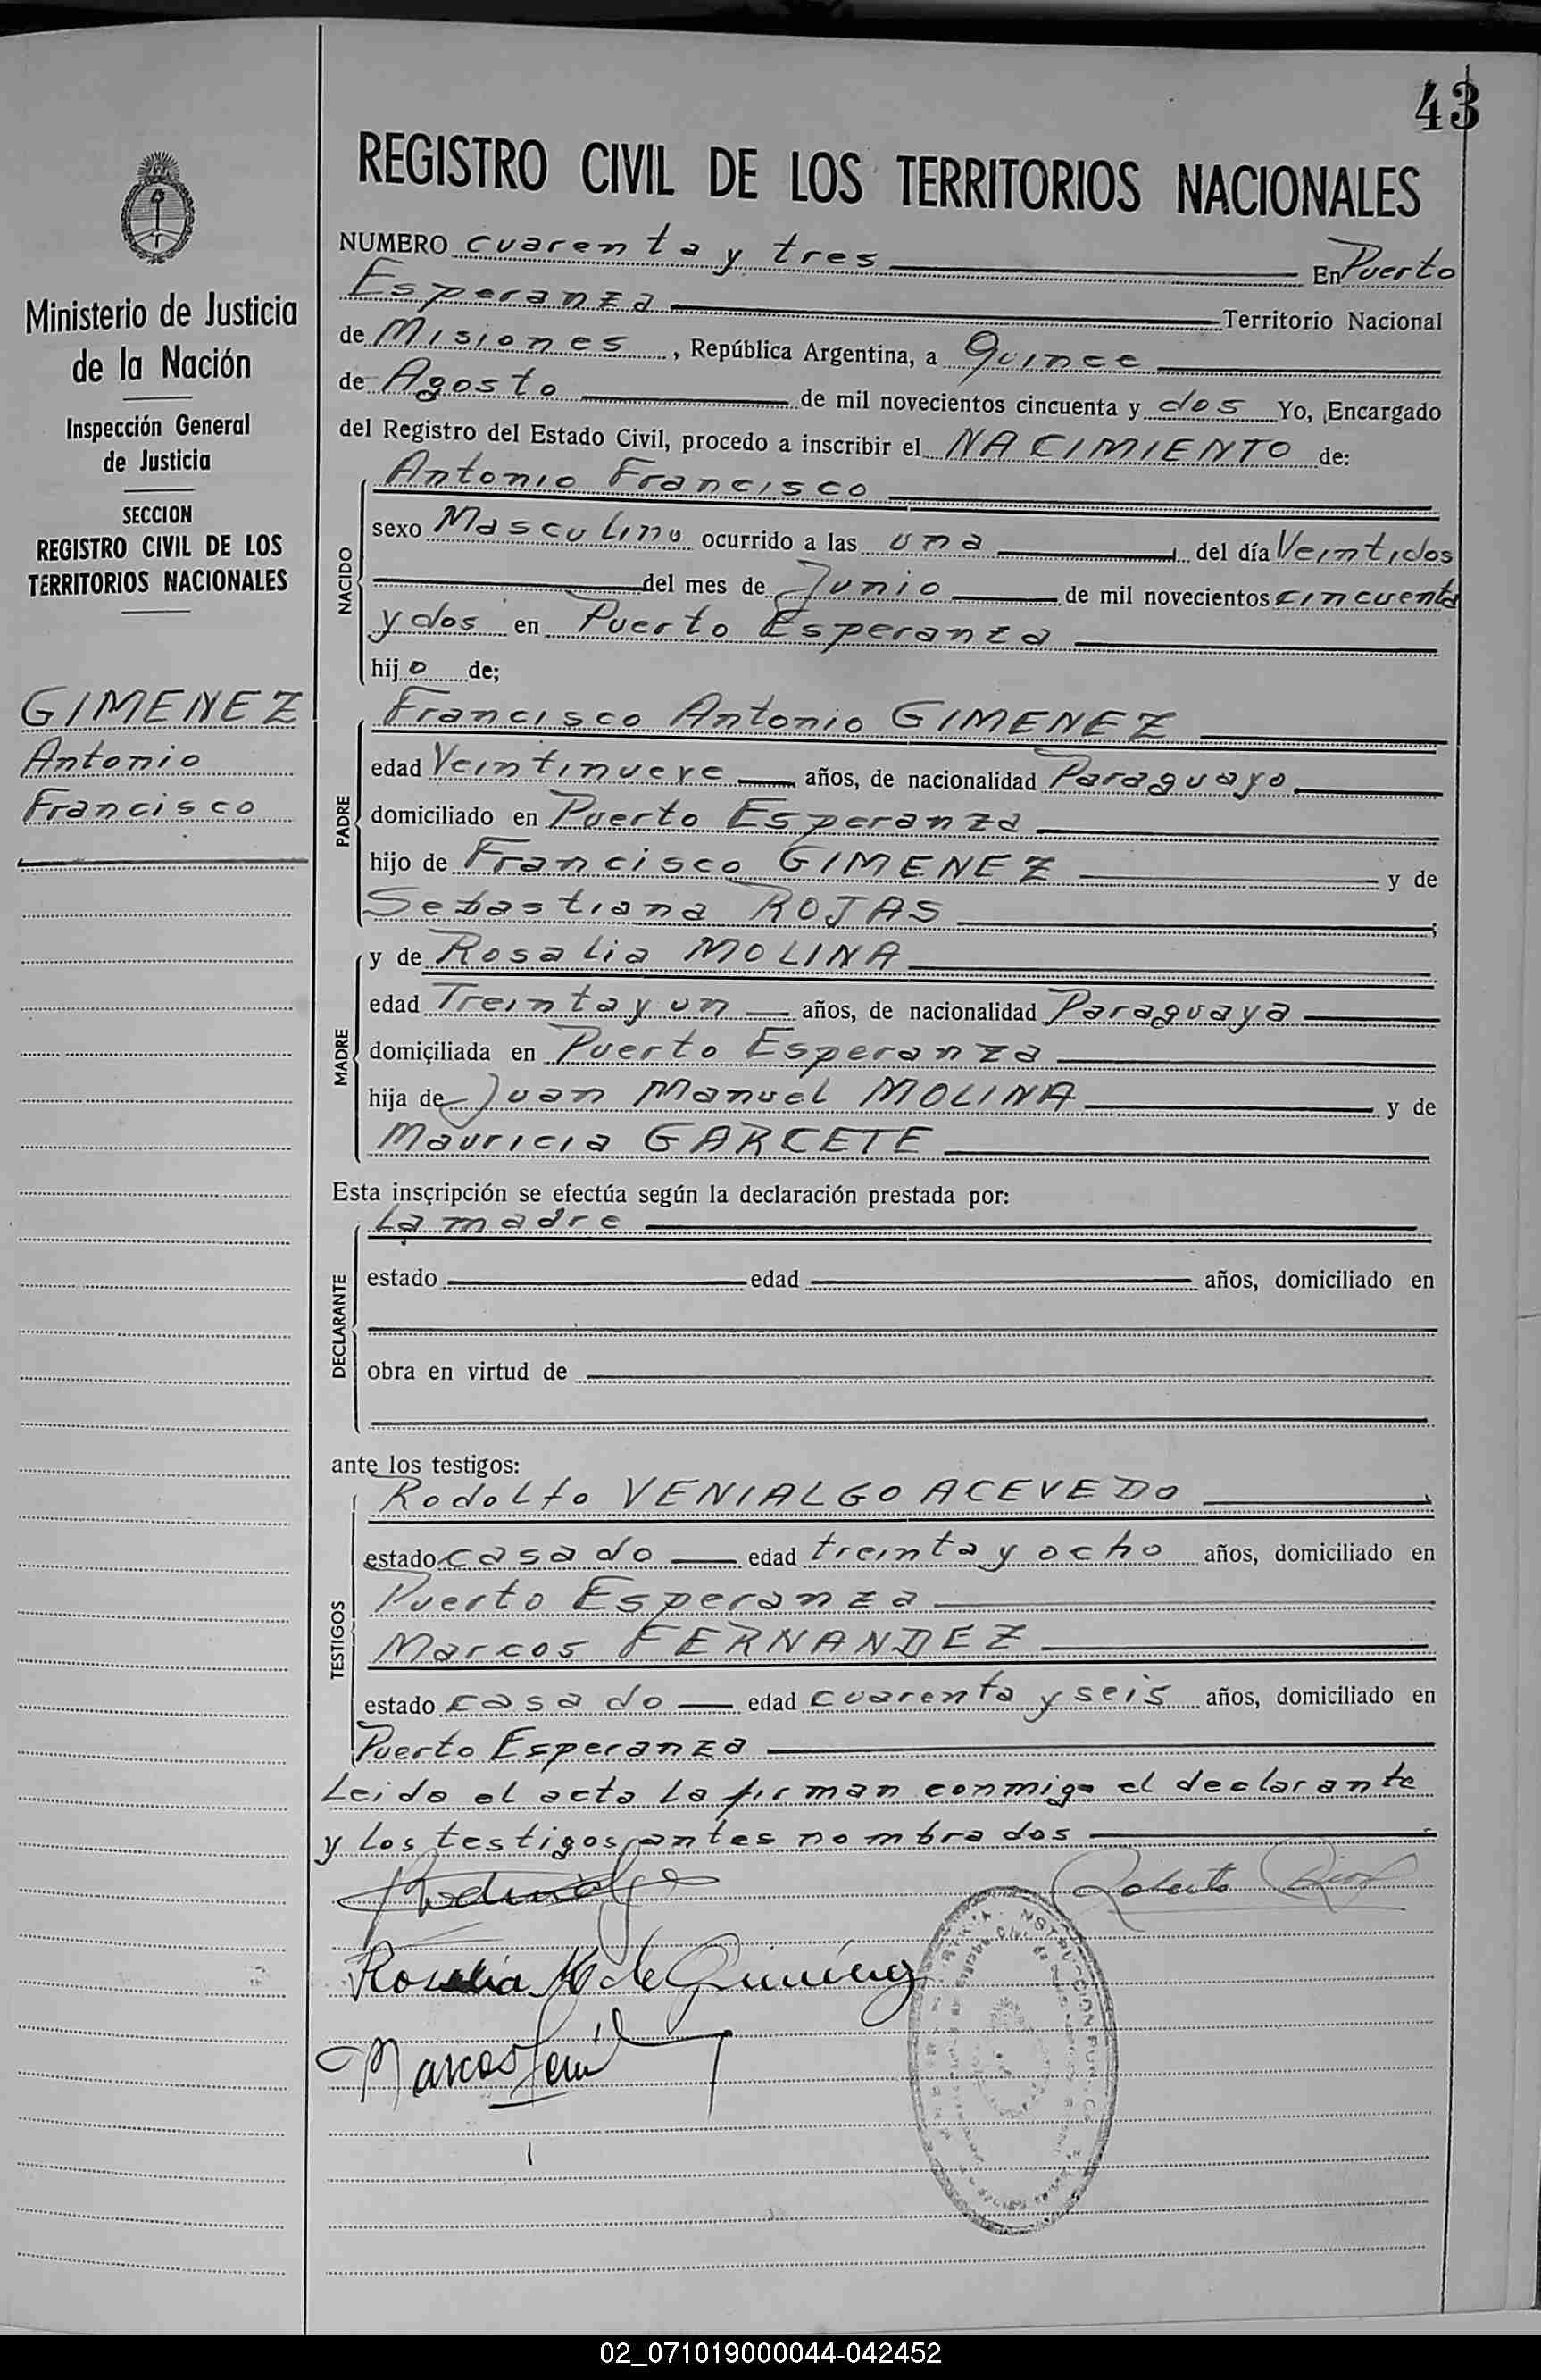 43
REGISTRO CIVIL DE LOS TERRITORIOS NACIONALES
Ministerio de Justicia
de la Nación
Inspección General
de Justicia
SECCION
REGISTRO CIVIL DE LOS
TERRITORIOS NACIONALES
GIMENEZ
Antonio
Francisco
NUMERO cuarenta y tres En Puerto
Esperanza Territorio Nacional
de Misiones, República Argentina, a Quince
de Agosto de mil novecientos cincuenta y dos Yo, Encargado
del Registro del Estado Civil, procedo a inscribir el NACIMIENTO de:
NACIDO
Antonio Francisco
sexo Masculino ocurrido a las una del día Veintidos
del mes de Junio de mil novecientos cincuenta
y dos en Puerto Esperanza
hijo de;
PADRE
Francisco Antonio GIMENEZ
edad Veintinueve años, de nacionalidad Paraguayo
domiciliado en Puerto Esperanza
hijo de Francisco GIMENEZ y de
Sebastiana ROJAS;
MADRE
y de Rosalia MOLINA
edad Treinta y un años, de nacionalidad Paraguaya
domiçiliada en Puerto Esperanza
hija de Juan Manuel MOLINA y de
Mauricia GARCETE
Esta insçripción se efectúa según la declaración prestada por:
DECLARANTE
La madre
estado edad años, domiciliado en
obra en virtud de
ante los testigos:
TESTIGOS
Rodolfo VENIALGO ACEVEDO
estado casado edad treinta y ocho años, domiciliado en
Puerto Esperanza
Marcos FERNANDEZ
estado casado edad cuarenta y seis años, domiciliado en
Puerto Esperanza
Leido el acta la firman conmigo el declarante
y los testigos antes nombrados
Roberto
Rosalia M de Gimenez
Marcos
02_071019000044-042452